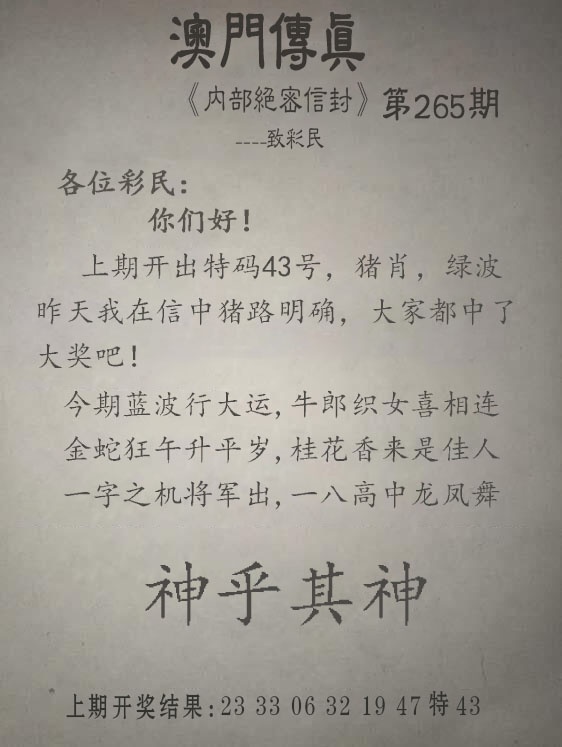 澳門傳眞
《内部絕密信封》第265期
----致彩民
各位彩民：
你们好！
上期开出特码43号，猪肖，绿波
昨天我在信中猪路明确，大家都中了
大奖吧！
今期蓝波行大运,牛郎织女喜相连
金蛇狂午升平岁,桂花香来是佳人
一字之机将军出,一八高中龙凤舞
神乎其神
上期开奖结果:23 33 06 32 19 47 特 43